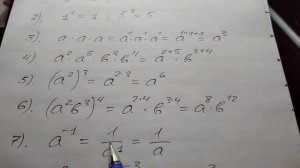 2). 1¹ = 1 ; 5¹ = 5
3). a · a · a = a¹ · a¹ · a¹ = a¹⁺¹⁺¹ = a³
4) a² · a⁵ · b³ · b⁴ = a²⁺⁵ · b³⁺⁴
5) (a²)³ = a²·³ = a⁶
6). (a²b³)⁴ = a²·⁴ · b³·⁴ = a⁸ · b¹²
7). a⁻¹ = 1/a¹ = 1/a